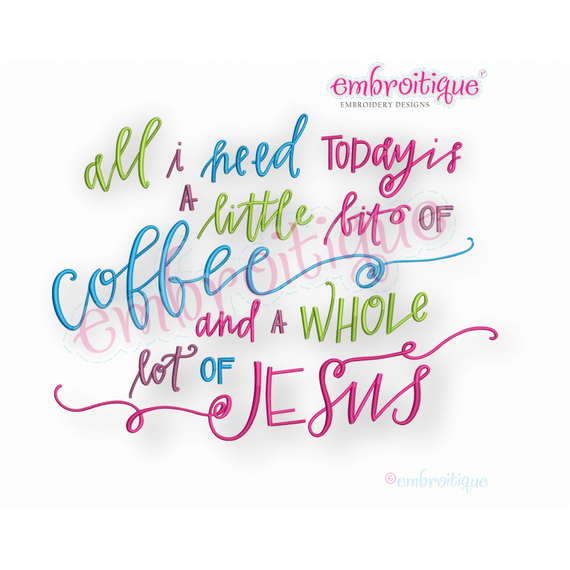 embroitique
EMBROIDERY DESIGNS
all i need TODAY is
A little bit OF
coffee
embroitique
and A WHOLE
lot OF JESUS
©embroitique